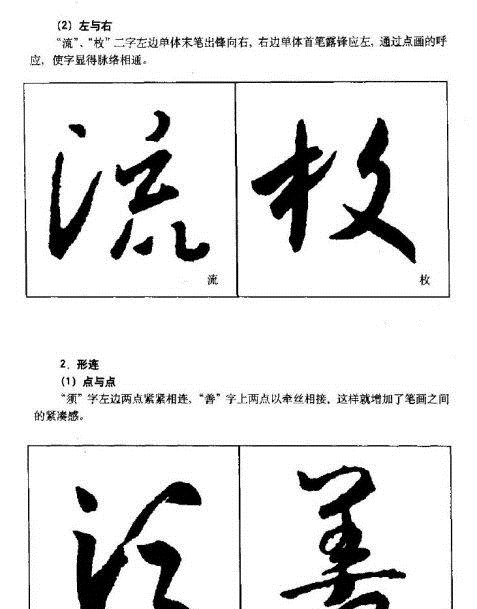 (2) 左与右
“流”、“枚”二字左边单体末笔出锋向右，右边单体首笔露锋应左，通过点画的呼
应，使字显得脉络相通。
流 枚
流 枚
2．形连
(1) 点与点
“须”字左边两点紧紧相连、“善”字上两点以牵丝相接，这样就增加了笔画之间
的紧凑感。
须 善